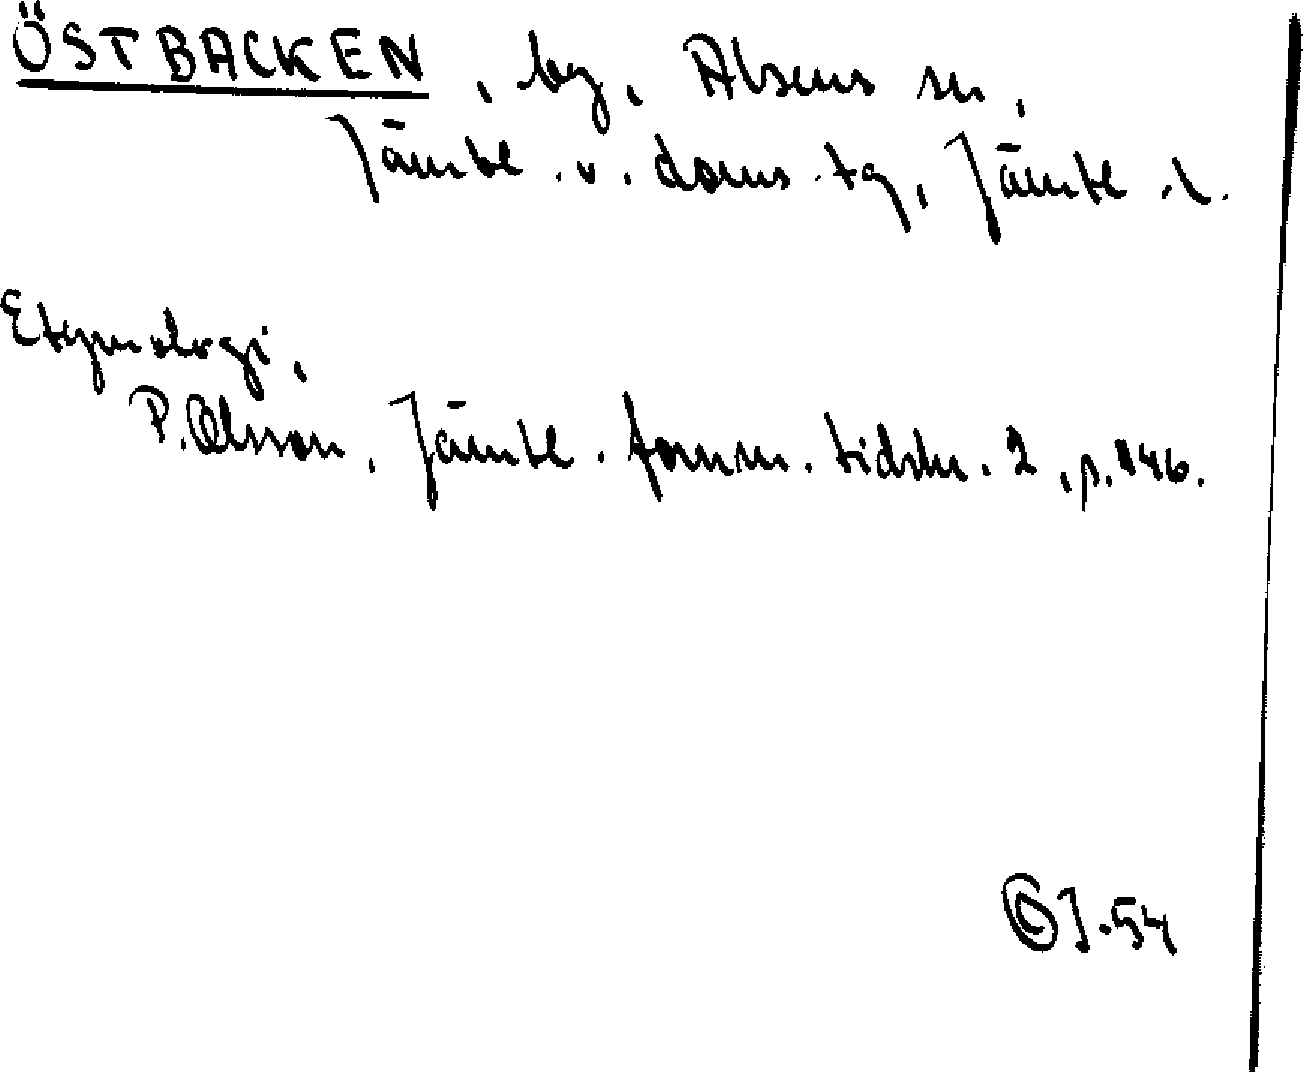 ÖSTBACKEN, by, Alsens sn,
Jämtl. v. doms. tg, Jämtl. l.
Etymologi,
P. Olsson, Jämtl. fornm. tidskr. 2, p. 146.
J.54